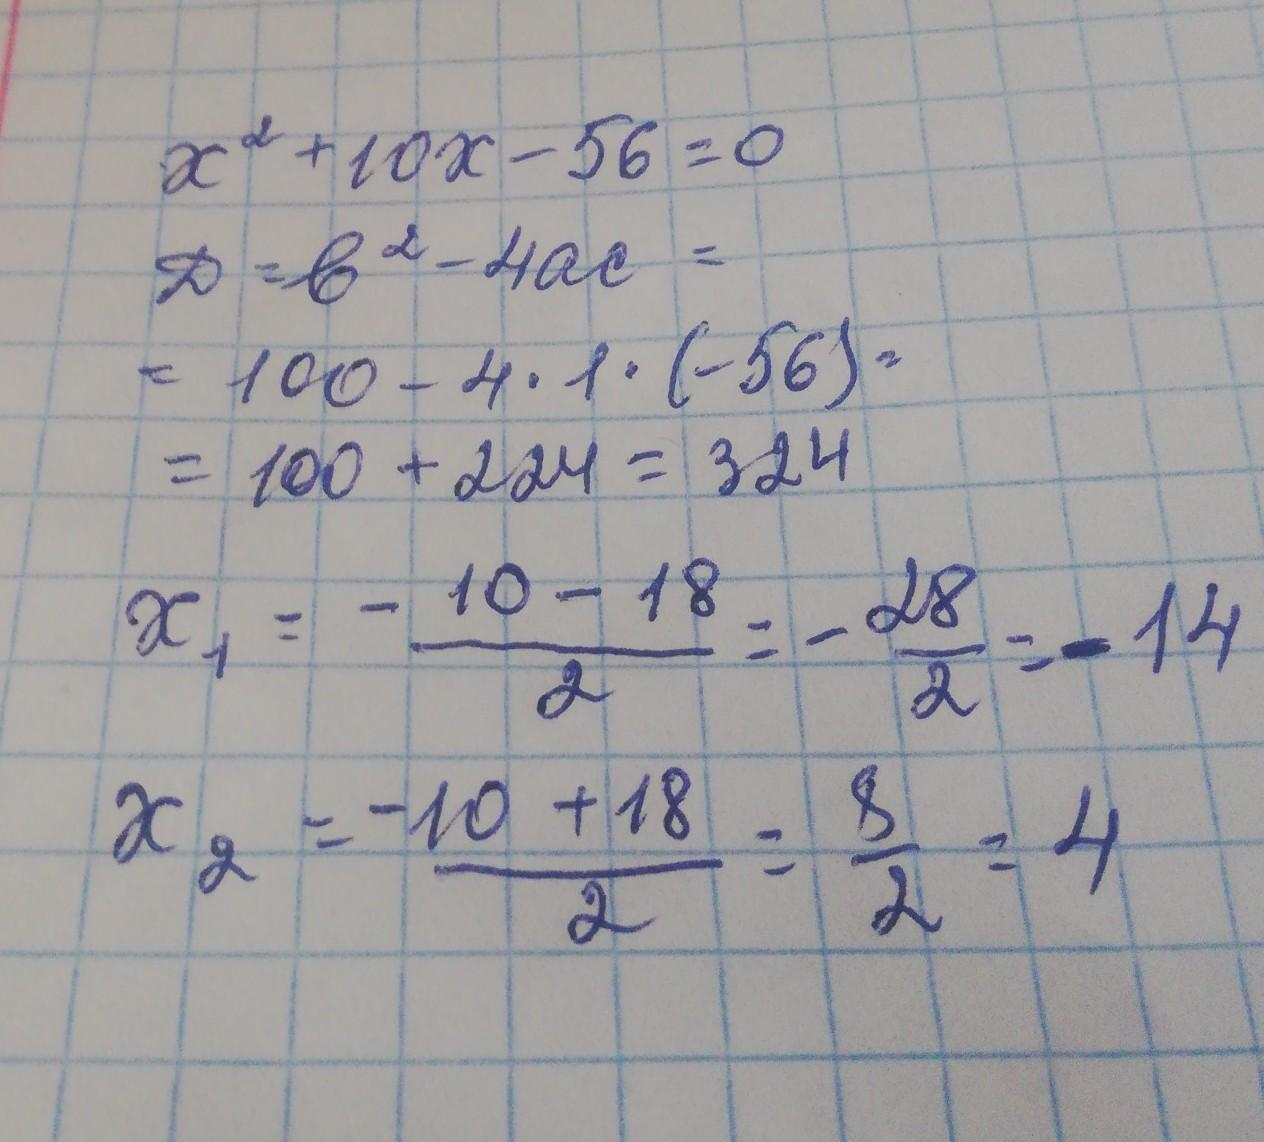 x² + 10x - 56 = 0
Д = в² - 4ac =
= 100 - 4 · 1 · (-56) =
= 100 + 224 = 324
x₁ = - 10 - 18 / 2 = - 28 / 2 = - 14
x₂ = -10 + 18 / 2 = 8 / 2 = 4